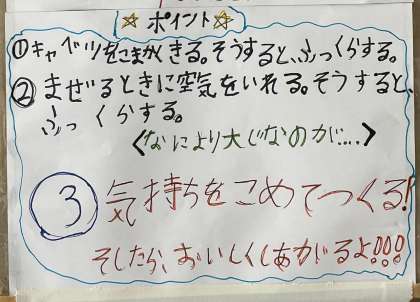 ☆ポイント☆
①キャベツをこまかくきる。そうすると、ふっくらする。
②まぜるときに空気をいれる。そうすると、
ふっくらする。
<なにより大じなのが....>
③気持ちをこめてつくる!
そしたら、おいしくしあがるよ!!!